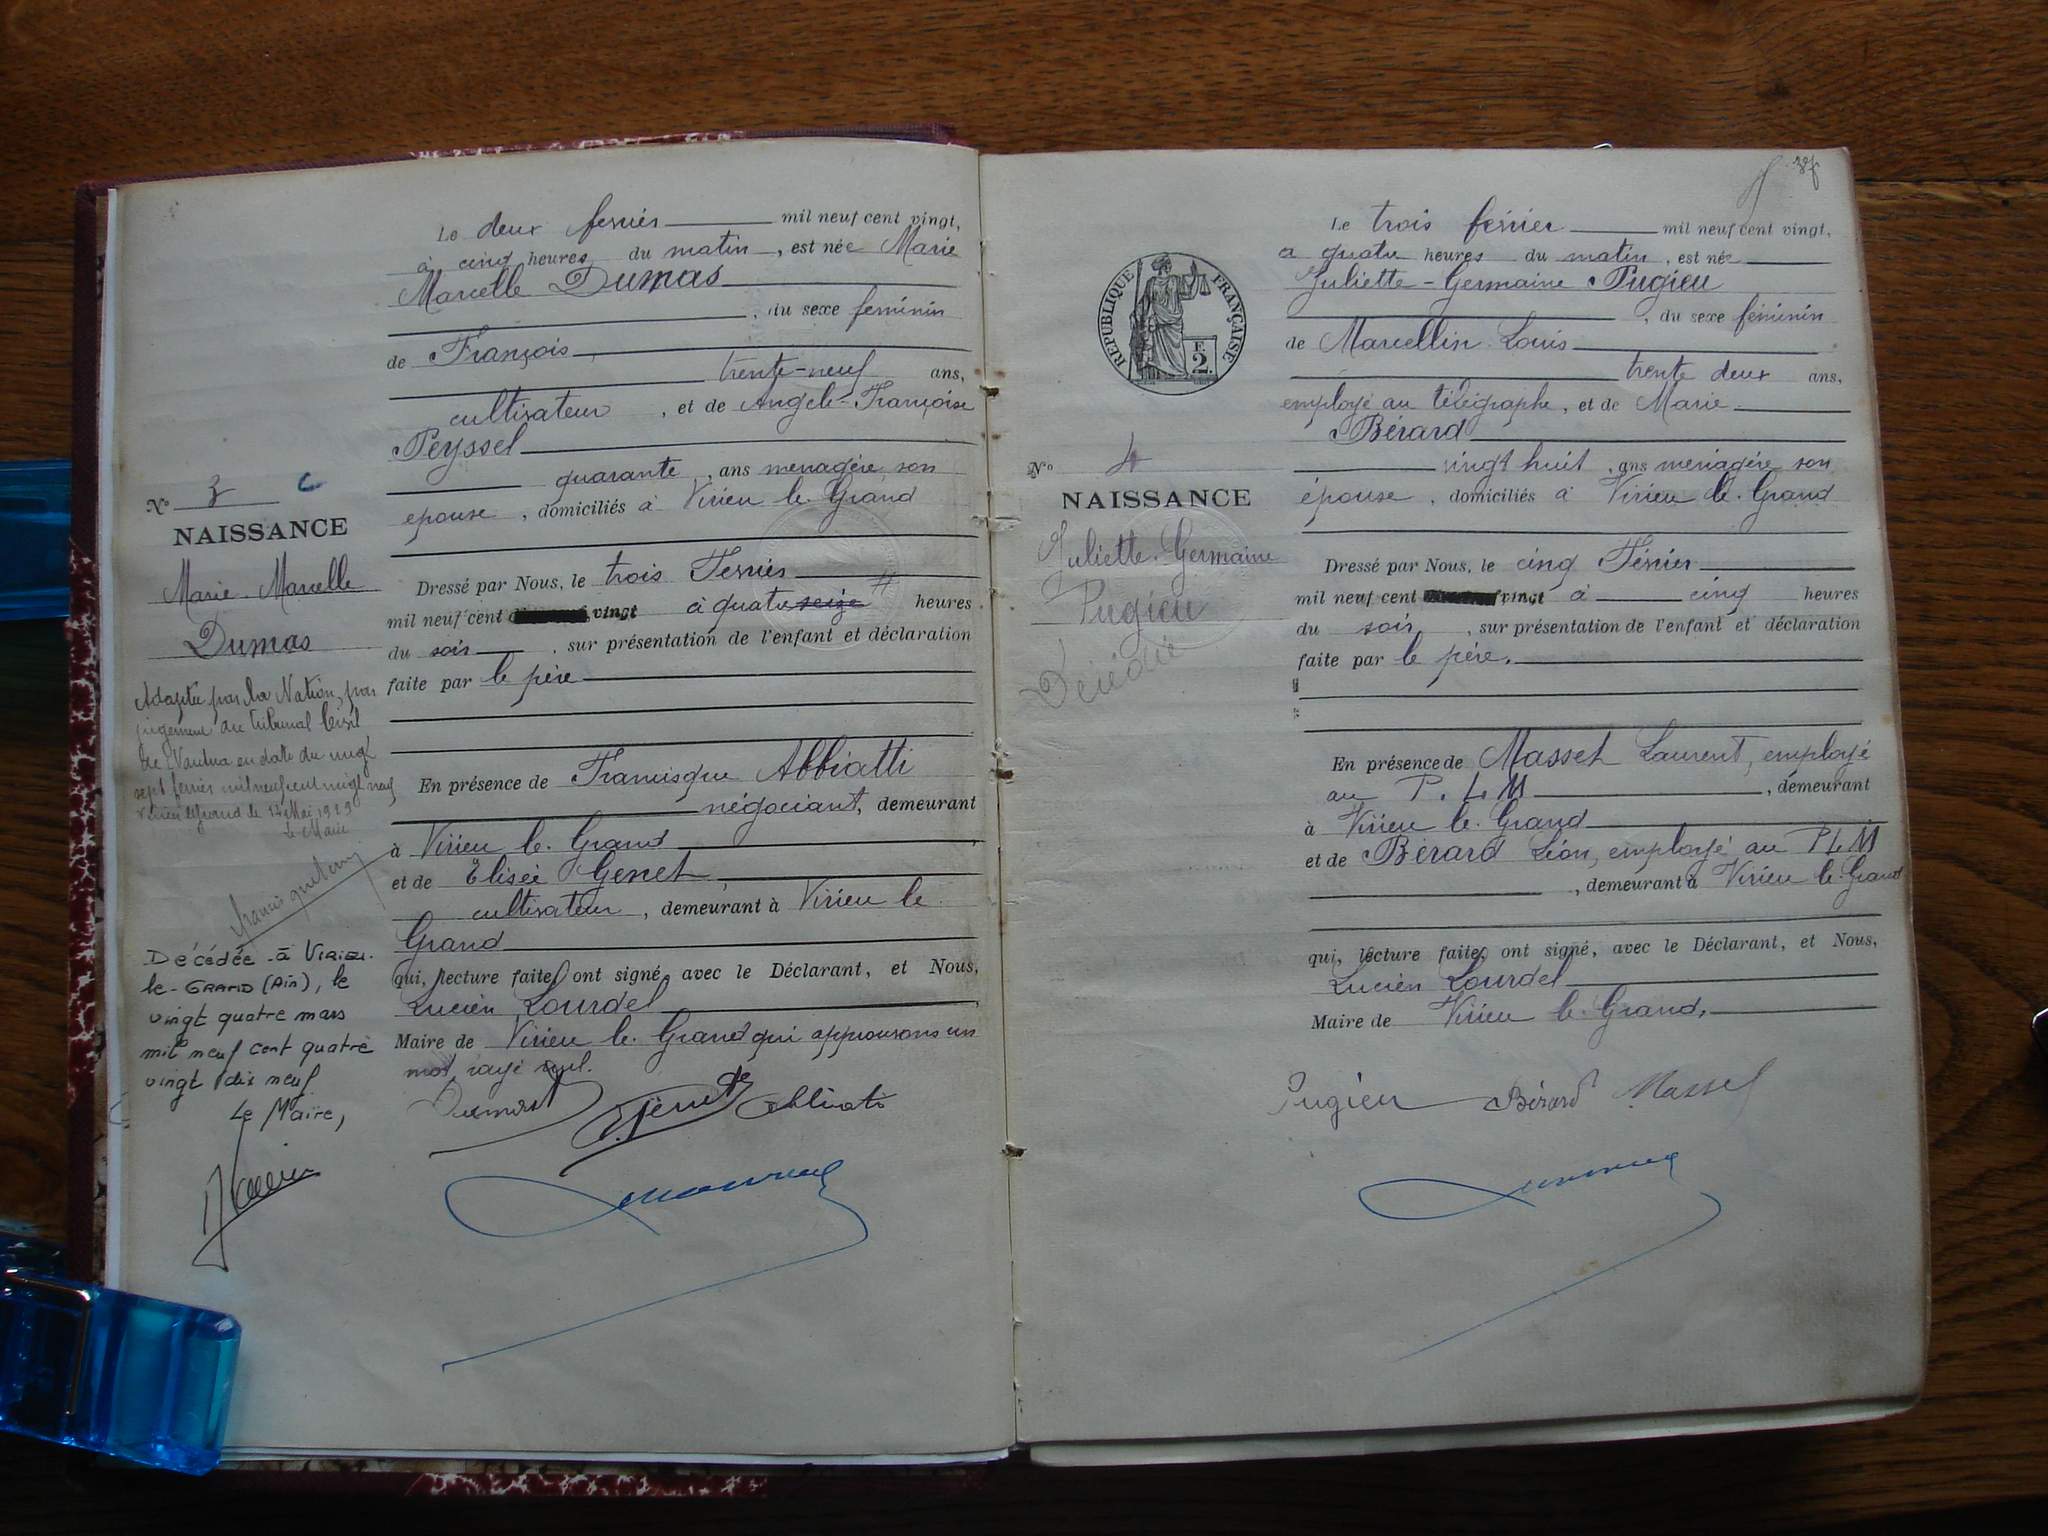 Le deux fevrier mil neuf cent vingt,
à cinq heures du matin, est née Marie
Marcelle Dumas
, du sexe féminin
de François
trente-neuf ans,
cultivateur, et de Angele-Françoise
Peyssel
quarante, ans menagère son
epouse, domiciliés à Virieu le Grand
No 3 C
NAISSANCE
Marie Marcelle
Dumas
Dressé par Nous, le trois Fevrier
mil neuf cent vingt à quatre seize heures
du soir, sur présentation de l'enfant et déclaration
faite par le père
Adoptée par la Nation, par
jugement du tribunal Civil
de Nantua en date du vingt
sept fevrier mil neuf cent vingt neuf
Virieu le Grand le 14 Mai 1929
Le Maire
En présence de Francisque Abbiatti
négociant, demeurant
à Virieu le Grand
et de Elisée Genet
cultivateur, demeurant à Virieu le
Grand
qui, lecture faite, ont signé, avec le Déclarant, et Nous,
Lucien Lourdel
Maire de Virieu le Grand qui approuvons un
mot rayé nul.
Décédée à Virieu-
le-GRAND (Ain), le
vingt quatre mars
mil neuf cent quatre
vingt dix neuf
Le Maire,
Dumas Genet Abbiati
Le trois fevrier mil neuf cent vingt,
a quatre heures du matin, est née
Juliette-Germaine Pugieu
, du sexe féminin
de Marcellin Louis
trente deux ans,
employé au télégraphe, et de Marie
Bérard
vingt huit, ans menagère son
épouse, domiciliés à Virieu le Grand
RÉPUBLIQUE FRANÇAISE
F. 2.
No 4
NAISSANCE
Juliette-Germaine
Pugieu
Décédée
Dressé par Nous, le cinq Février
mil neuf cent vingt à cinq heures
du soir, sur présentation de l'enfant et déclaration
faite par le père.
En présence de Masset Laurent, employé
au P. L M, demeurant
à Virieu le Grand
et de Bérard Léon, employé au PLM
, demeurant à Virieu le Grand
qui, lecture faite, ont signé, avec le Déclarant, et Nous,
Lucien Lourdel
Maire de Virieu le Grand,
Pugieu Bérard Massel